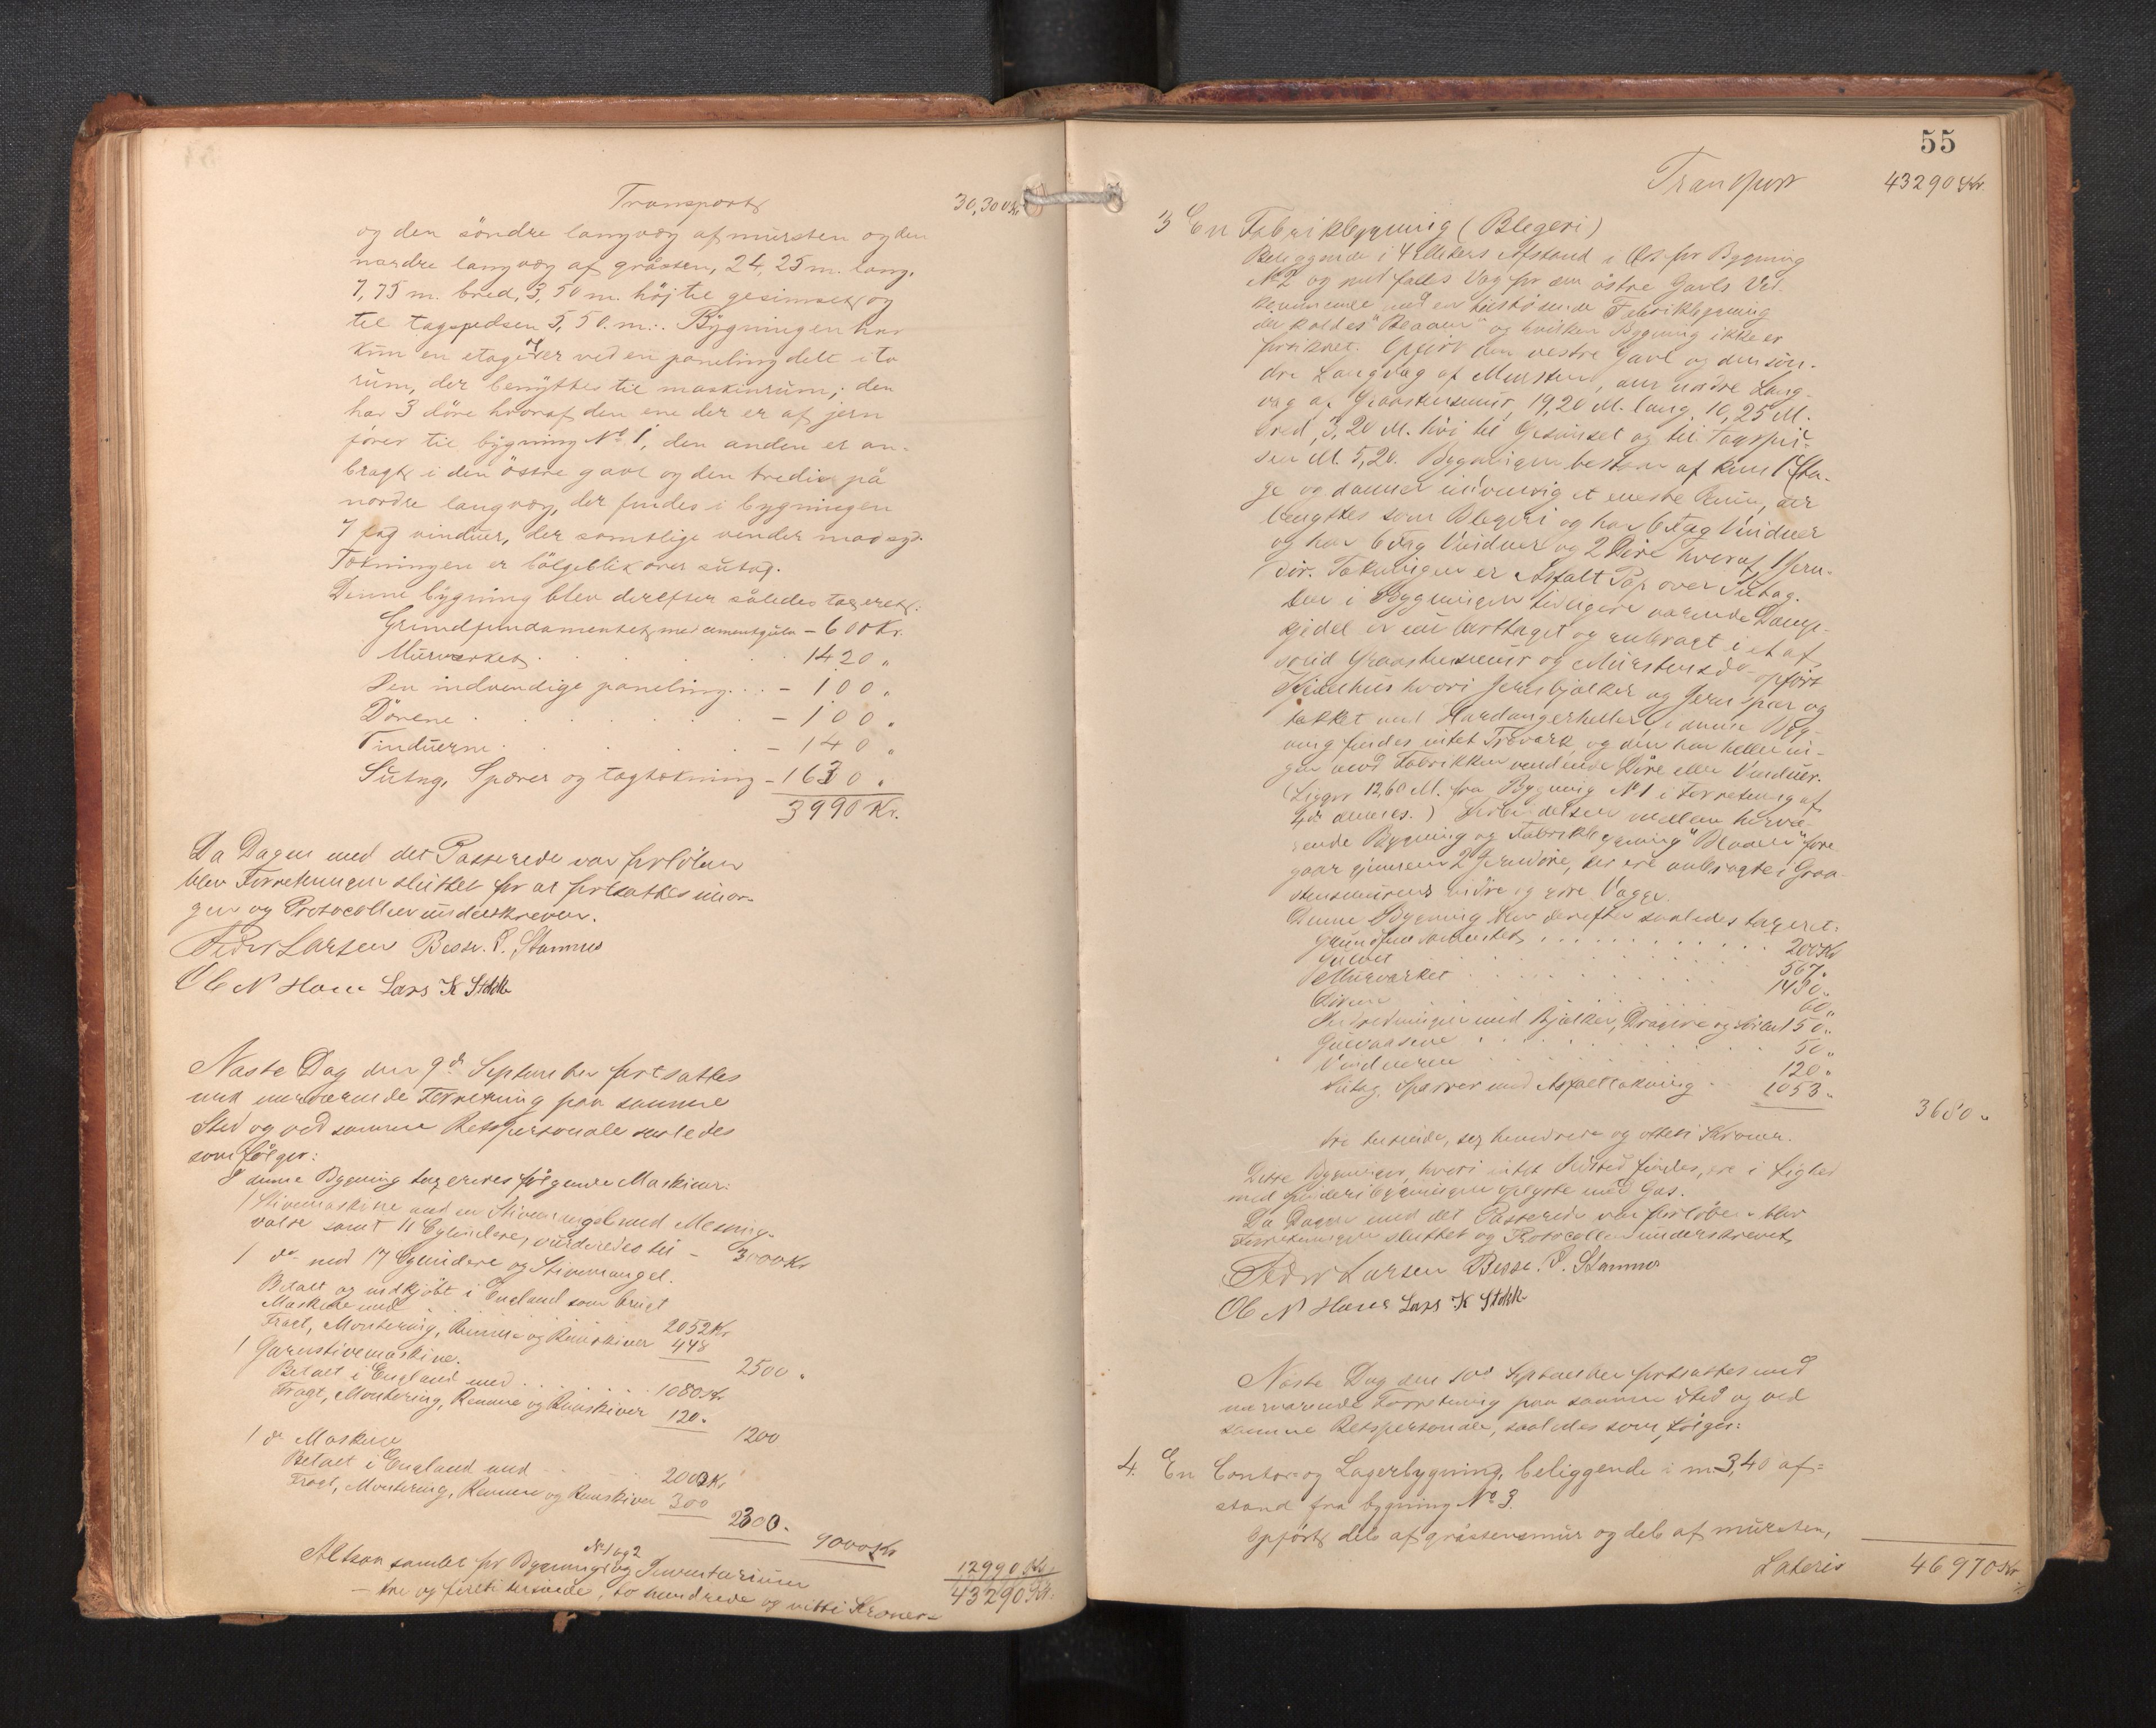 Transport 30,300 Kr
og den söndre langvæg af mursten og den
nordre langvæg af gråsten, 24,25 m. lang,
7,75 m. bred, 3,50 m. höj til gesimset og
til tagspidsen 5,50. m:. Bygningen har
kun en etage og er ved en paneling delt i to
rum, der benyttes til maskinrum; den
har 3 döre hvoraf den ene der er af jern
förer til bygning No 1, den anden er an-
bragt i den östre gavl og den tredie på
nordre langvæg, der findes i bygningen
7 fag vinduer, der samtlige vender mod syd.
Tækningen er bölgeblik over sutag.
Denne bygning blev derefter således taxeret:
Grundfundamentet med cementgulv - 600 Kr.
Murværket 1420 "
Den indvendige paneling - 100 "
Dörene - 100 "
Vinduerne - 140 "
Sutag, Spærer og tagtækning - 1630 "
3990 Kr.
Da Dagen med det Passerede var forløben
blev Forretningen sluttet for at fortsættes imor-
gen og Protocollen underskreven.
Peder Larsen Besse. P. Stammes
Ole N Hane Lars K Stokke
Næste Dag den 9de September fortsattes
med nærværende Forretning paa samme
Sted og ved samme Retspersonale saaledes
som følger:
I denne Bygning taxeredes følgende Maskiner:
1 Stivemaskine med en Stivemangel med Messing-
valse samt 11 Cylindere, vurderedes til - 3000 Kr
1 do med 17 Cylindere og Stivemangel.
Betalt og indkjøbt i England som brugt
Maskine med 2052 Kr
Fragt, Montering, Remme og Remskiver 448
2500 "
1 Garnstivemaskine.
Betalt i England med 1080 Kr
Fragt, Montering, Remme og Remskiver 120 "
1200
1 do Maskine
Betalt i England med 2000 Kr
Fragt, Montering, Remme og Remskiver 300
2300 "
9000 Kr
12990 Kr.
Altsaa samlet for Bygninger No 1 og 2 og Inventarium
- tre og firti tusinde, to hundrede og nitti Kroner - 43290 Kr.
55
Transport 43290 Kr.
3 En Fabrikbygning (Blegeri)
Beliggende i 4 Meters Afstand i Øst for Bygning
No 2 og med fælles Væg for den østre Gavls Ved-
kommende med en tilstødende Fabrikbygning
der kaldes "Blaaen" og hvilken Bygning ikke er
forsikret. Opført den vestre Gavl og den søn-
dre Langvæg af Mursten, den nordre Lang-
væg af Graastensmur, 19,20 M. lang, 10,25 M.
bred, 3,20 M. höi til Gesimset og til Tagspid-
sen M. 5,20. Bygningen bestaar af kun 1 Eta-
ge og danner indvendig et eneste Rum, der
benyttes som Blegeri og har 6 fag Vinduer
og har 6 Fag Vinduer og 2 Døre hvoraf 1 Jern-
dør. Tækningen er Asfalt Pap over Sutag.
Den i Bygningen tidligere værende Damp-
kjedel er nu borttaget og anbragt i et af
solid Graastensmur og Murstens do opført
Kjedelhus hvori Jernbjælker og Jern Spær og
tækket med Hardangerheller, i denne Byg-
ning findes intet Træværk, og den har heller in-
gen mod Fabrikken vendende Døre eller Vinduer.
(Ligger 12,60 M. fra Bygning No 1 i Forretning af
4de dennes.) Forbindelsen mellem herva-
rende Bygning og Fabrikbygning "Blaaen" fore-
gaar gjennem 2 Jerndøre, der ere anbragte i Graa-
stensmurens indre og ydre Vægge.
Denne Bygning blev derefter saaledes taxeret:
Grundfundamentet 200 Kr
Gulvet 567 "
Murværket 1430 "
Dörene 60 "
Indredningen med Bjælker, Dragere og 150 "
50 "
Vinduerne 120 "
Sutag, Spærrer med Asfalttækning 1053 "
3680 "
tre tusinde, sex hundrede og otteti Kroner.
Disse Bygninger, hvori intet Ildsted findes, ere i Lighed
med Spinderibygningen oplyste med Gas.
Da Dagen med det Passerede var forløben blev
Forretningen sluttet og Protocollen underskrevet.
Peder Larsen Besse. P. Stammes
Ole N Hane Lars K Stokke
Næste Dag den 10de September fortsattes med
nærværende Forretning paa samme Sted og ved
samme Retspersonale, saaledes som følger:
4. En Contor- og Lagerbygning, beliggende i m. 3,40 af-
stand fra bygning No 3.
Opført dels af gråstensmur og dels af mursten,
Lateris 46970 Kr.